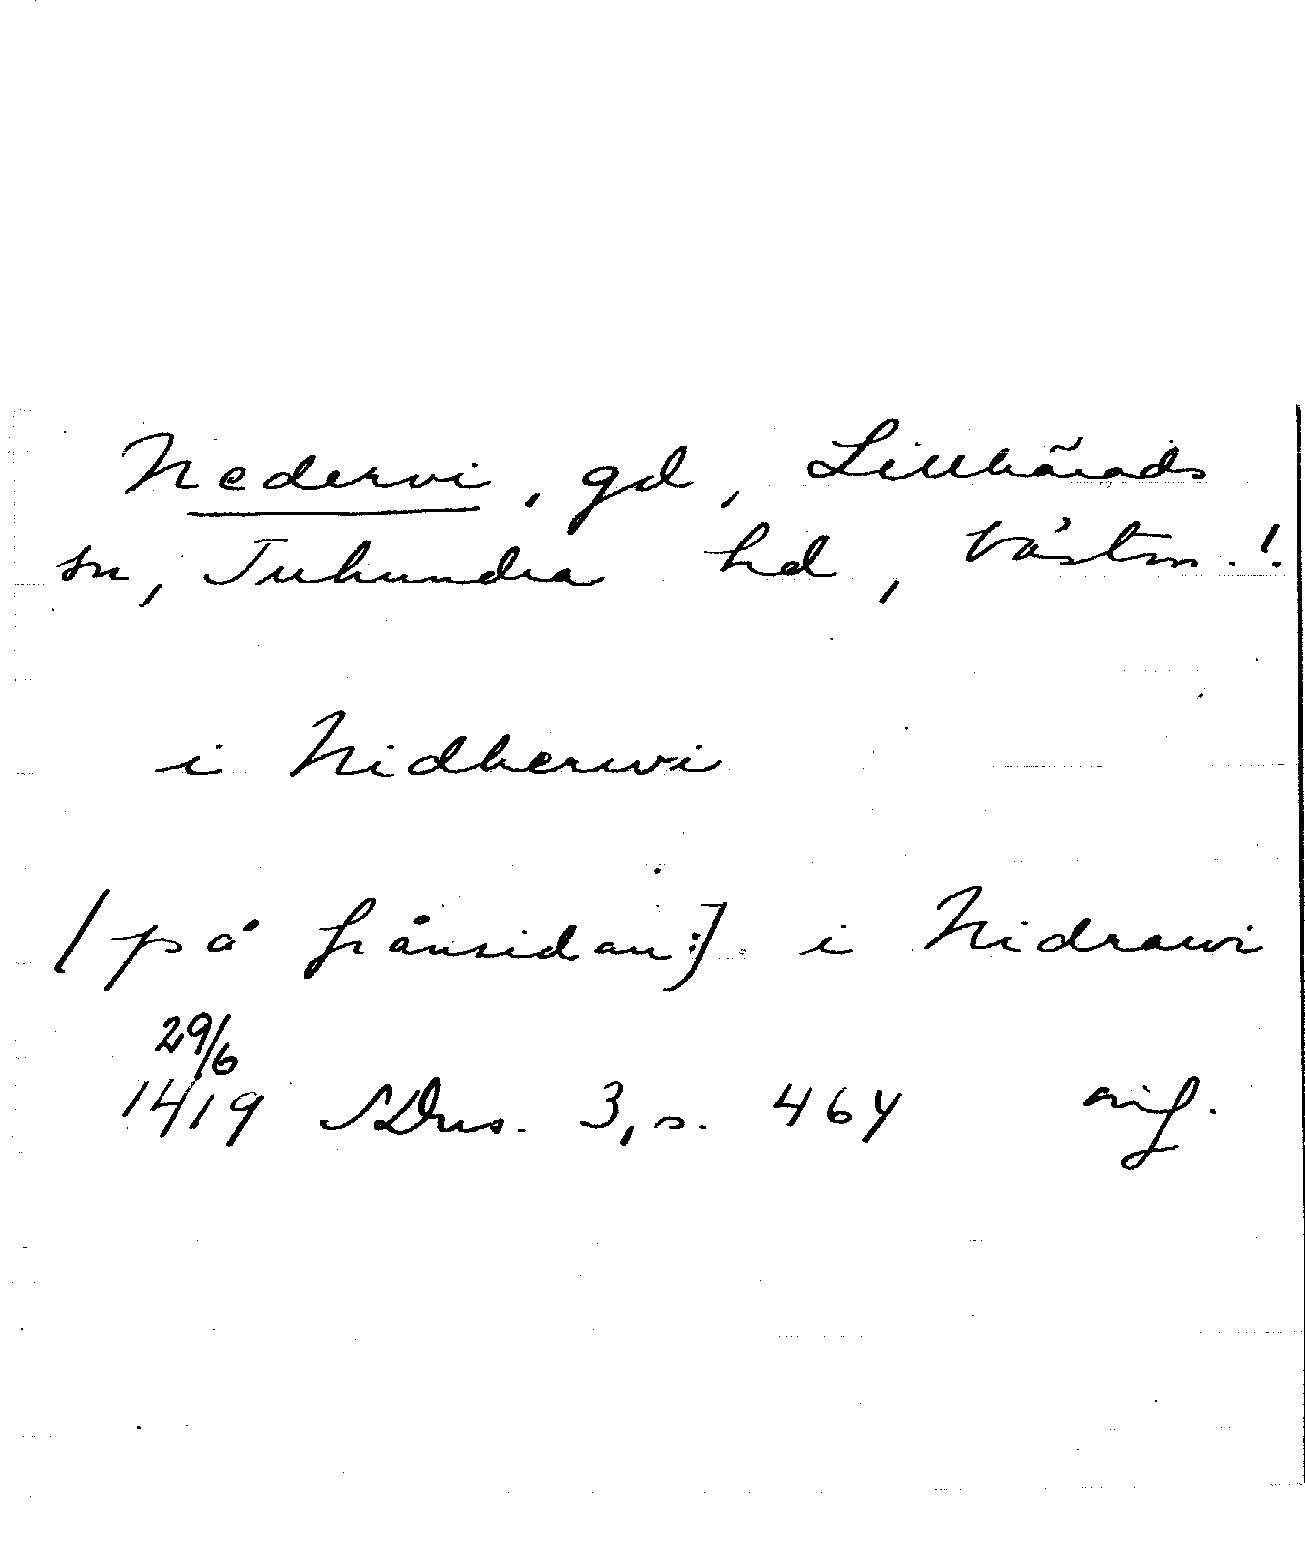 Nedervi, gd, Lillhärads
sn, Tuhundra hd, Västm.!
i Nidherwi
[på frånsidan:] i Nidrawi
29/6
1419 SDns. 3, s. 464 orig.